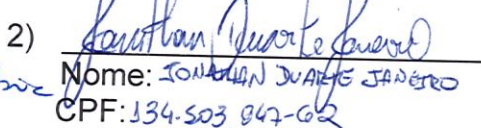 2) Jonathan Duarte Janeiro
Nome: JONATHAN DUARTE JANEIRO
CPF: 134.503 947-62